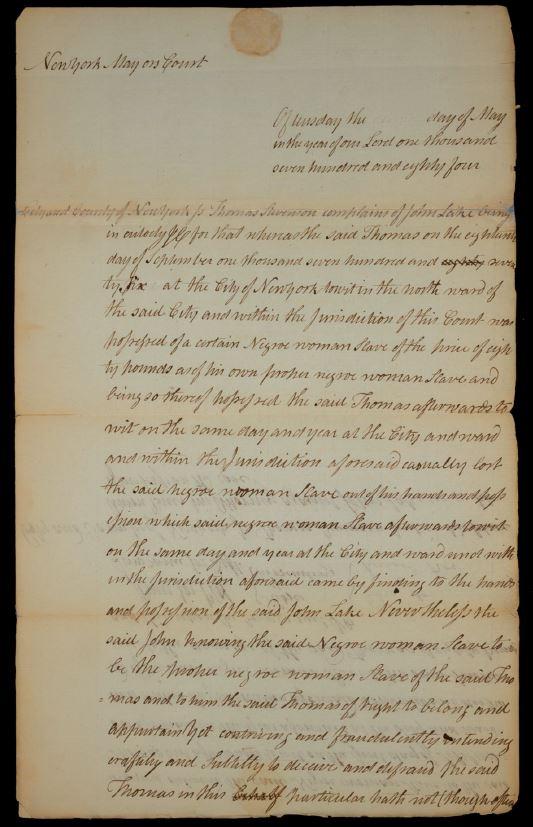 New York Mayors Court
Of tuesday the day of May
in the year of our Lord one thousand
seven hundred and eighty four
City and County of New York ss Thomas Stevenson complains of John Lake being
in custody &c for that whereas the said Thomas on the eighteenth
day of September one thousand seven hundred and eighty seven
ty six at the City of New York towit in the north ward of
the said City and within the Jurisdiction of this Court was
possessed of a certain Negroe woman Slave of the price of eigh
ty pounds as of his own proper negroe woman Slave and
being so thereof possessed the said Thomas afterwards to
wit on the same day and year at the City and ward
and within the Jurisdiction aforesaid casually lost
the said negroe woman Slave out of his hands and poss
ession which said negroe woman Slave afterwards towit
on the same day and year at the City and ward and with
in the jurisdiction aforesaid came by finding to the hands
and possession of the said John Lake Nevertheless the
said John knowing the said Negroe woman Slave to
be the proper negroe woman Slave of the said Tho
=mas and to him the said Thomas of right to belong and
appurtain yet contriving and fraudulently intending
craftily and Subtilly to deceive and defraud the said
Thomas in this behalf particular hath not (though often